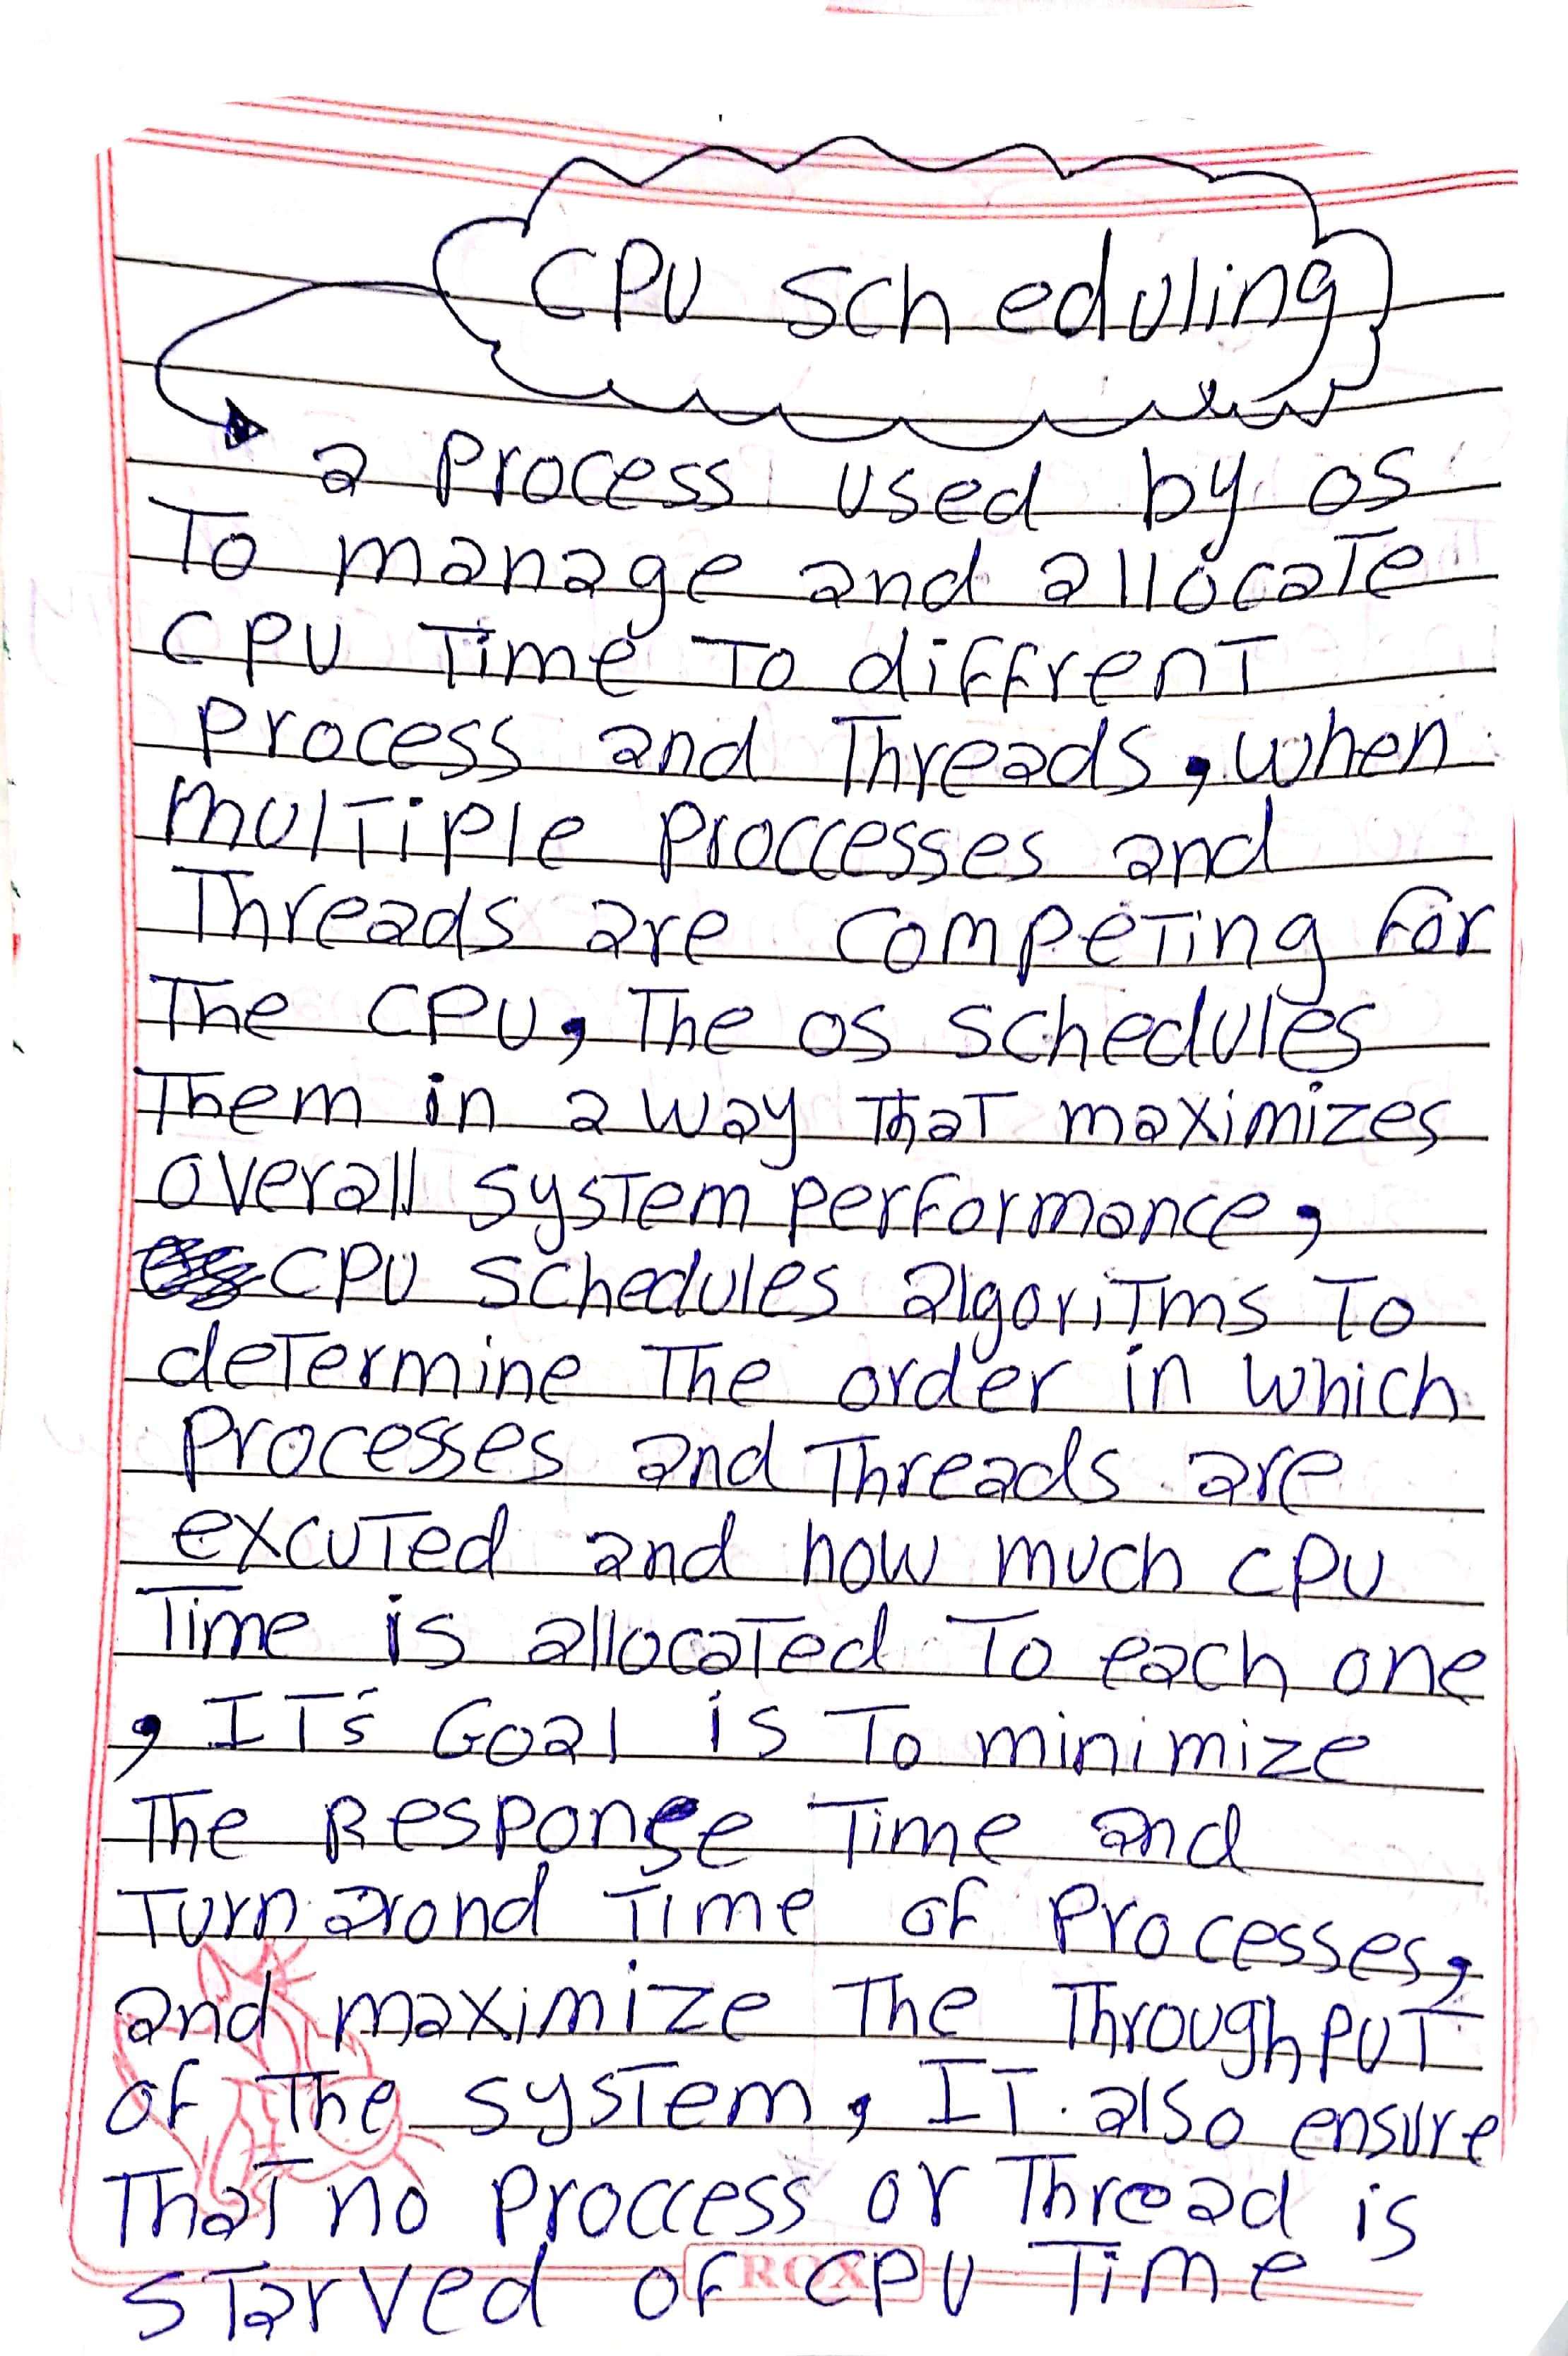 CPU scheduling
a process used by os
To manage and allocate
CPU Time To diffrent
process and Threads, when
multiple proccesses and
Threads are competing for
The CPU, The os schedules
Them in a way that maximizes
overall system performance,
CPU schedules algoritms To
determine The order in which
processes and Threads are
excuted and how much CPU
Time is allocated To each one
, IT's Goal is To minimize
The Response Time and
Turn arond Time of processes,
and maximize The Throughput
of The system, IT also ensure
That no proccess or Thread is
starved of CPU Time
ROX